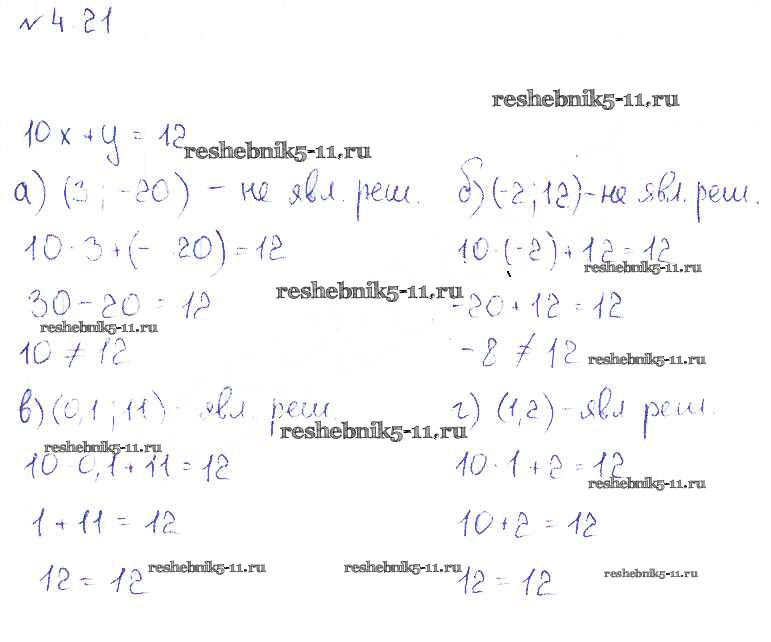 № 4.21
reshebnik5-11.ru
10x + y = 12
reshebnik5-11.ru
а) (3 ; -20) - не явл. реш.
10 · 3 + (- 20) = 12
30 - 20 = 12
reshebnik5-11.ru
reshebnik5-11.ru
10 ≠ 12
б) (-2 ; 12) - не явл. реш.
10 · (-2) + 12 = 12
reshebnik5-11.ru
-20 + 12 = 12
-8 ≠ 12
reshebnik5-11.ru
в) (0,1 ; 11) - явл. реш.
reshebnik5-11.ru
reshebnik5-11.ru
10 · 0,1 + 11 = 12
1 + 11 = 12
12 = 12
reshebnik5-11.ru
г) (1,2) - явл реш.
10 · 1 + 2 = 12
reshebnik5-11.ru
10 + 2 = 12
reshebnik5-11.ru
12 = 12
reshebnik5-11.ru